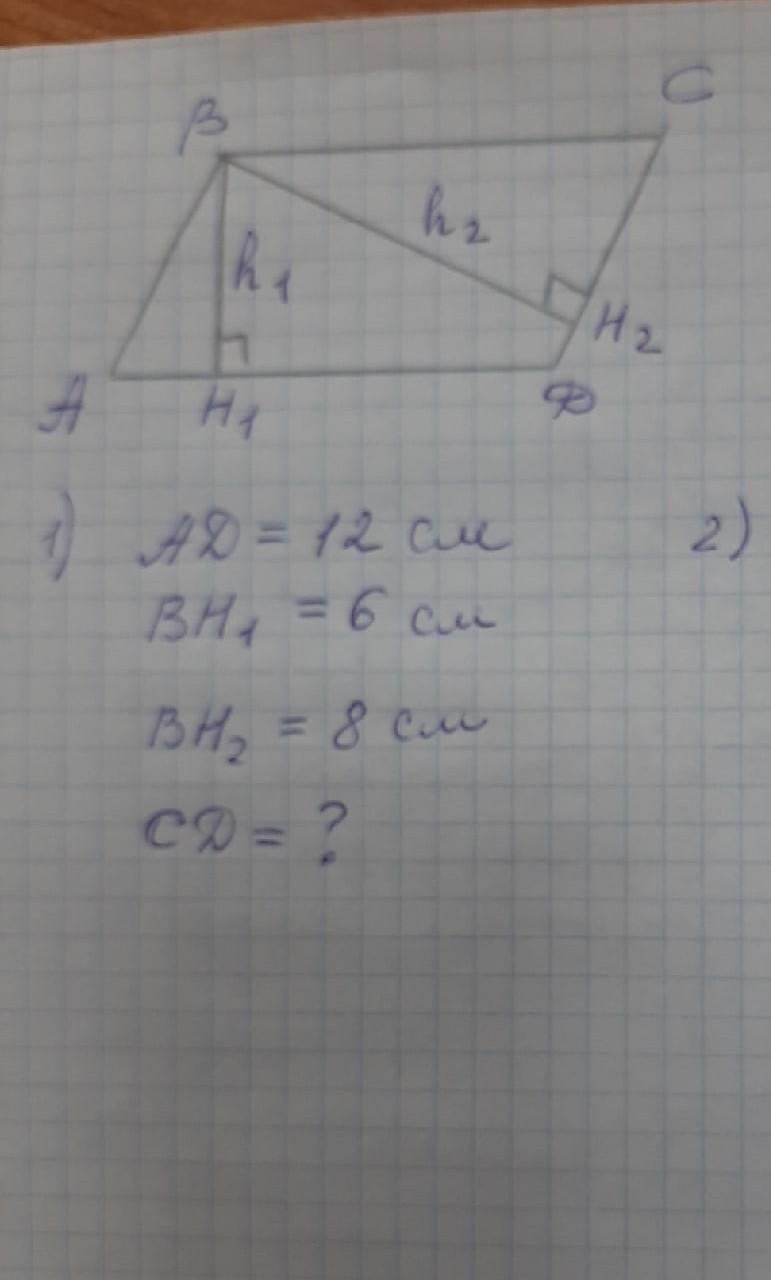 B
C
h₂
h₁
H₂
A
H₁
D
1) AD = 12 см
2)
BH₁ = 6 см
BH₂ = 8 см
CD = ?